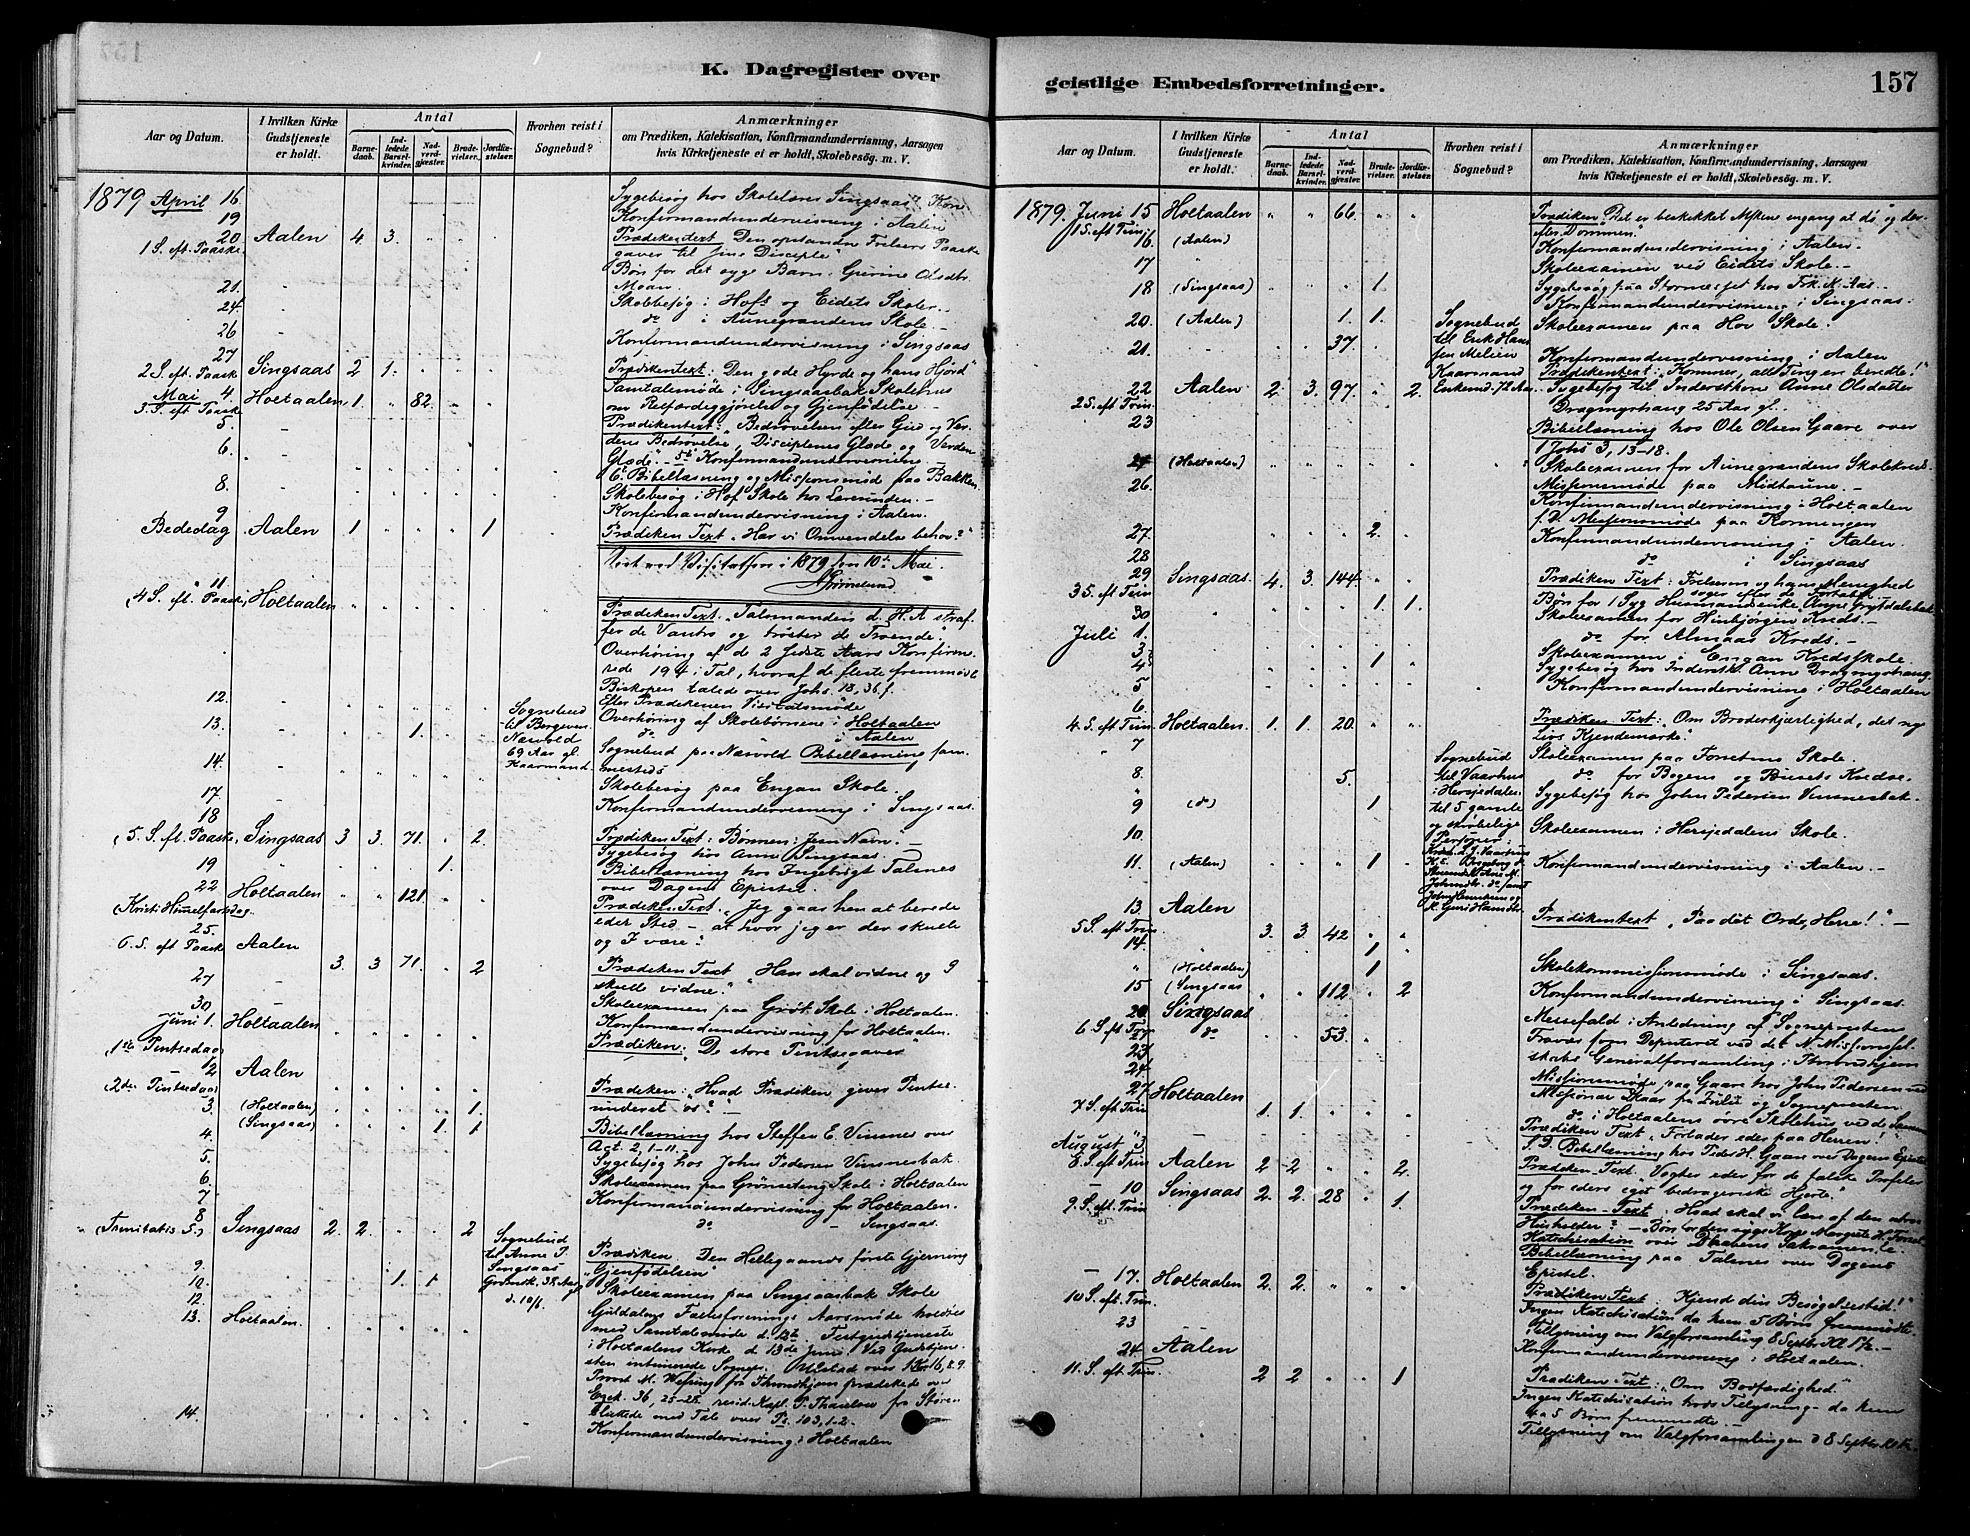 K. Dagregister over
geistlige Embedsforretninger.
157
Aar og Datum.
I hvilken Kirke Gudstjeneste er holdt.
Antal
Barnedaab.
Indledede Barselkvinder.
Nadverdgjæster.
Brudevielser.
Jordfæstelser.
Hvorhen reist i Sognebud?
Anmærkninger
om Prædiken, Katekisation, Konfirmandundervisning, Aarsagen
hvis Kirketjeneste ei er holdt, Skolebesøg. m. V.
1879 April 16 Sygebesøg hos Skolelærer Singsaas
19 Konfirmandundervisning i Aalen
20 Aalen 4. 3. Prædikentext Den opstandne Frelsers Paaske
1 S. eft. Paaske gaver til sine Disciple"
Bøn for det syge Barn: Gurine Olsdtr
Moan.
21. Skolebesøg i Hofs og Eidets Skoler.
24. do i Aunegrandens Skole.
26 Konfirmandundervisning i Singsaas
27
2 S. eft. Paask Singsaas 2 1. Prædikentext: Den gode Hyrde og hans Hjord"
Samtalemøde i Singsaasbak Skolehus
Mai 4. Holtaalen 1. 82. om Retfærdiggjørelse og Gjenfødelse
3. S. eft Paask
Prædikentext: "Bedrøvelsen efter Gud og Ver-
5. dens Bedrøvelse, Disciplenes Glæde og Verdens
6. Glæde". 5te Konfirmandundervisning
6. Bibellæsning og Missionsmød paa Bakken
8. Skolebesøg i Hof Skole hos Lerunden.
9 Konfirmandundervisning i Aalen.
Bededag Aalen 1 1 Prædiken Text "Har vi Omvendelse behov?"
Vist ved Visitatsen i 1879 den 10de Mai.
AGrimelund
11
(4 S. eft. Paaske, Holtaalen Prædiken Text. "Talsmanden d. H. A straf-
fer de Vantro og trøster de Troende".
Overhøring af de 2 sidste Aars Konfirme-
rede 194 i Tal, hvoraf de fleste fremmødt
Biskopen talede over Johs. 18, 36 f.
12. Efter Prædikenen Visitatsmøde
13. 1. Sognebud til Borgeven Næsvold 69 Aar gl. Kaarmand. Overhøring af Skolebørnene i Holtaalen
do i Aalen
14. Sognebud paa Næsvold Bibellæsning sam-
mesteds
17 Skolebesøg paa Engan Skole.
18 Konfirmandundervisning i Singsaas.
(5. S. ft. Paaske, Singsaas 3 3. 71. 2. Prædiken Text: Bønnen i Jesu Navn".
19 1. Sygebesøg hos Anne Singsaas
Bibellæsning hos Ingebrigt Talnes
22 Holtaalen 121. over Dagens Epistel.
(Kristi Himmelfartsdag. Prædiken Text. "Jeg gaar hen at berede
25. eder Sted — at hvor jeg er der skulle
6. S. eft Paask Aalen 3. 3 71. 2 og I være".
Prædiken Text "Han skal vidne og I
27 skulle vidne".
30 Skoleexamen paa Grøt. Skole i Holtaalen.
Juni 1. Holtaalen Konfirmandundervisning for Holtaalen.
1ste Pintsedag Prædiken. "De store Pintsegaver"
2 Aalen
2den Pintsedag Prædiken: "Hvad Prædiken giver Pintse-
3. (Holtaalen) 1. underet os?"
4. (Singsaas) 1. 1 Bibellæsning hos Steffen E. Vinsnes over
Act. 2, 1-11.
5. Sygebesøg hos John Pedersen Vinsnesbak
6. Skoleexamen paa Grønseteng Skole i Holtaalen
7 Konfirmandundervisning for Holtaalen.
8 do — Singsaas.
(Trinitatis S.) Singsaas 2. 2. 2 Prædiken Den Helligaands første Gjerning
"Gjenfødelsen"
9. Sognebud til Anne I. Singsaas
10. 1. 1 d. 10/6. Skoleexamen paa Singsaasbak Skole
12 Guldalens Fællesforenings Aarsmøde holdtes
13. Holtaalen med Samtalemøde d. 12te. Festgudstjeneste
i Holtaalens Kirke d 13de Juni. Ved Gudstjen-
esten intimerede Sognepr. Ulstad over
Provst M. Wexring fra Throndhjem prædikede over
Ezek. 36, 25-28. resid. Kapl. P. Thaulow fra Støren
sluttede med Tale over Ps. 103, 1-2.
14. Konfirmandundervisning i Holtaalen
Aar og Datum.
I hvilken Kirke Gudstjeneste er holdt.
Antal
Barnedaab.
Indledede Barselkvinder.
Nadverdgjæster.
Brudevielser.
Jordfæstelser.
Hvorhen reist i Sognebud?
Anmærkninger
om Prædiken, Katekisation, Konfirmandundervisning, Aarsagen
hvis Kirketjeneste ei er holdt, Skolebesøg. m. V.
1879. Juni 15 Holtaalen 66. Prædiken "Det er beskikket Mskene engang at dø og der-
1 S. eft Trin. efter Dommen".
16. (Aalen) Konfirmandundervisning i Aalen.
17 Skoleexamen ved Eidets Skole.
18 (Singsaas) 1. Sygebesøg paa Stormesset hos Frk. K. Aas.
Konfirmandundervisning i Singsaas.
20. (Aalen) 1. 1. Sognebud til Erik Hansen Melien Kaarmand Skoleexamen paa Hov Skole.
21. 37. Konfirmandundervisning i Aalen
22 Aalen 2. 3. 97. 2. Enkemd. 72 Aar Prædikentext: "Kommer, alle Ting er beredte!"
2 S. eft Trin. Sygebesøg til Inderstkn Anne Olsdatter
Drøgningshaug 25 Aar gl.
23 Bibellæsning hos Ole Olsen Gaare over
1 Johs 3, 13-18.
24 (Holtaalen) Skoleexamen for Aunegrandens Skolekreds.
26. Missionsmøde paa Midtaune.
Konfirmandundervisning i Holtaalen
27. 2. s. D. Missionsmøde paa Kormengen
28 Konfirmandundervisning i Aalen.
do i Singsaas
29 Singsaas. 4. 3. 144. Prædiken Text: Frelseren og hans Menighed
3 S. eft Trin søger efter de fortabte
30 1. 1. Bøn for 1 Syg Husmandenke Anne Grytdalsbak
Juli 1. Skoleexamen for Hinbjørgen Kreds.
3. do for Almaas Kreds.
4. 1 Skoleexamen i Engan Kredsskole.
5 Sygebesøg hos Inderstk. Anne Drøgningshaug.
6. Konfirmandundervisning i Holtaalen
4. S. eft Trin Holtaalen. 1. 1. 20. Prædiken Text: "Om Broderkjærlighed, det nye
Livs Kjendemærke".
7 Skoleexamen paa Forsetmo Skole.
8. 5. Sognebud til Vaarhus i Hersjedalen til 5 gamle og skrøbelige Personer: do for Bogens og Busets Kredse.
9 (do) 1 Sygebesøg hos John Pedersen Vinsnesbak.
10. Skoleexamen i Hersjedalens Skole.
11. (Aalen) 1 Konfirmandundervisning i Aalen.
13. Aalen
5 S. eft Trin. 3. 3 42 Prædikentext "Paa dit Ord, Herre!"
14. 1
" (Holtaalen) 1 Skolekommissionsmøde i Singsaas.
15 (Singsaas 112 2 Konfirmandundervisning i Singsaas
20. Singsaas Messefald i Anledning af Sognepresten
6 S. ft Tr. do 53. Fravær som Deputeret ved det N. Missionssel-
23 skabs Generalforsamling i Throndhjem
24 Missionsmøde paa Gaare hos John Pedersen ved
27 Holtaalen Missionær Skaar fra Zulu og Sognepresten
7 S. eft Trin 1. 1. do i Holtaalens øvre Skolehus ved de Samme
August 3 Prædiken Text "Forlader eder paa Herren!"
8. S. eft Trin Aalen 2 2 2. s. D. Bibellæsning hos Peder H. Gaare over Dagens Epistel
10 Singsaas 2. 2. 28 1 Prædiken-Text: "Vogter eder for de falske Profeter
9. S. eft. Trin og for eders eget bedrageriske Hjerte".
Prædiken-Text: Hvad skal vi lære af den utro
Husholder? — Bøn for den syge
Katechisation over Daabens Sakramente
Bibellæsning paa Talnes over Dagens
Epistel.
17. Holtaalen 2. 2. Prædiken Text: "Kjend din Besøgelsestid!"
10 S. eft Trin. Ingen Katechisation da kun 5 Børn fremmødte
23 Tillysning om Valgforsamling 8 Septr. Kl. 5 1/2.
Konfirmandundervisning i Holtaalen.
24. Aalen
11. S. eft Trin. 2 2 1 Prædiken Text: "Om Bodfærdighed."
Ingen Katechisation trods Tillysning — da kun
4 a 5 Børn fremmødte.
Tillysning om Valgforsamlingen d 8 Septbr.